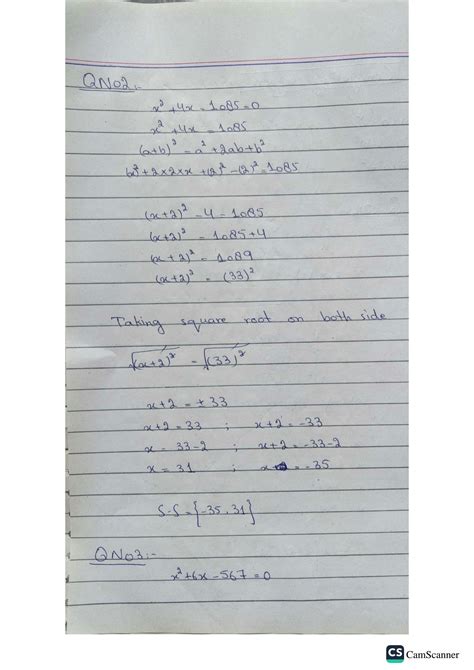 QNo2:-
x² + 4x - 1085 = 0
x² + 4x = 1085
(a+b)² = a² + 2ab + b²
(x)² + 2×2×x + (2)² - (2)² = 1085
(x+2)² - 4 = 1085
(x+2)² = 1085 + 4
(x+2)² = 1089
(x+2)² = (33)²
Taking square root on both side
√(x+2)² = √(33)²
x+2 = ± 33
x+2 = 33 ; x+2 = -33
x = 33-2 ; x+2 = -33-2
x = 31 ; x = -35
S.S = {-35, 31}
QNo3:-
x² + 6x - 567 = 0
CS CamScanner